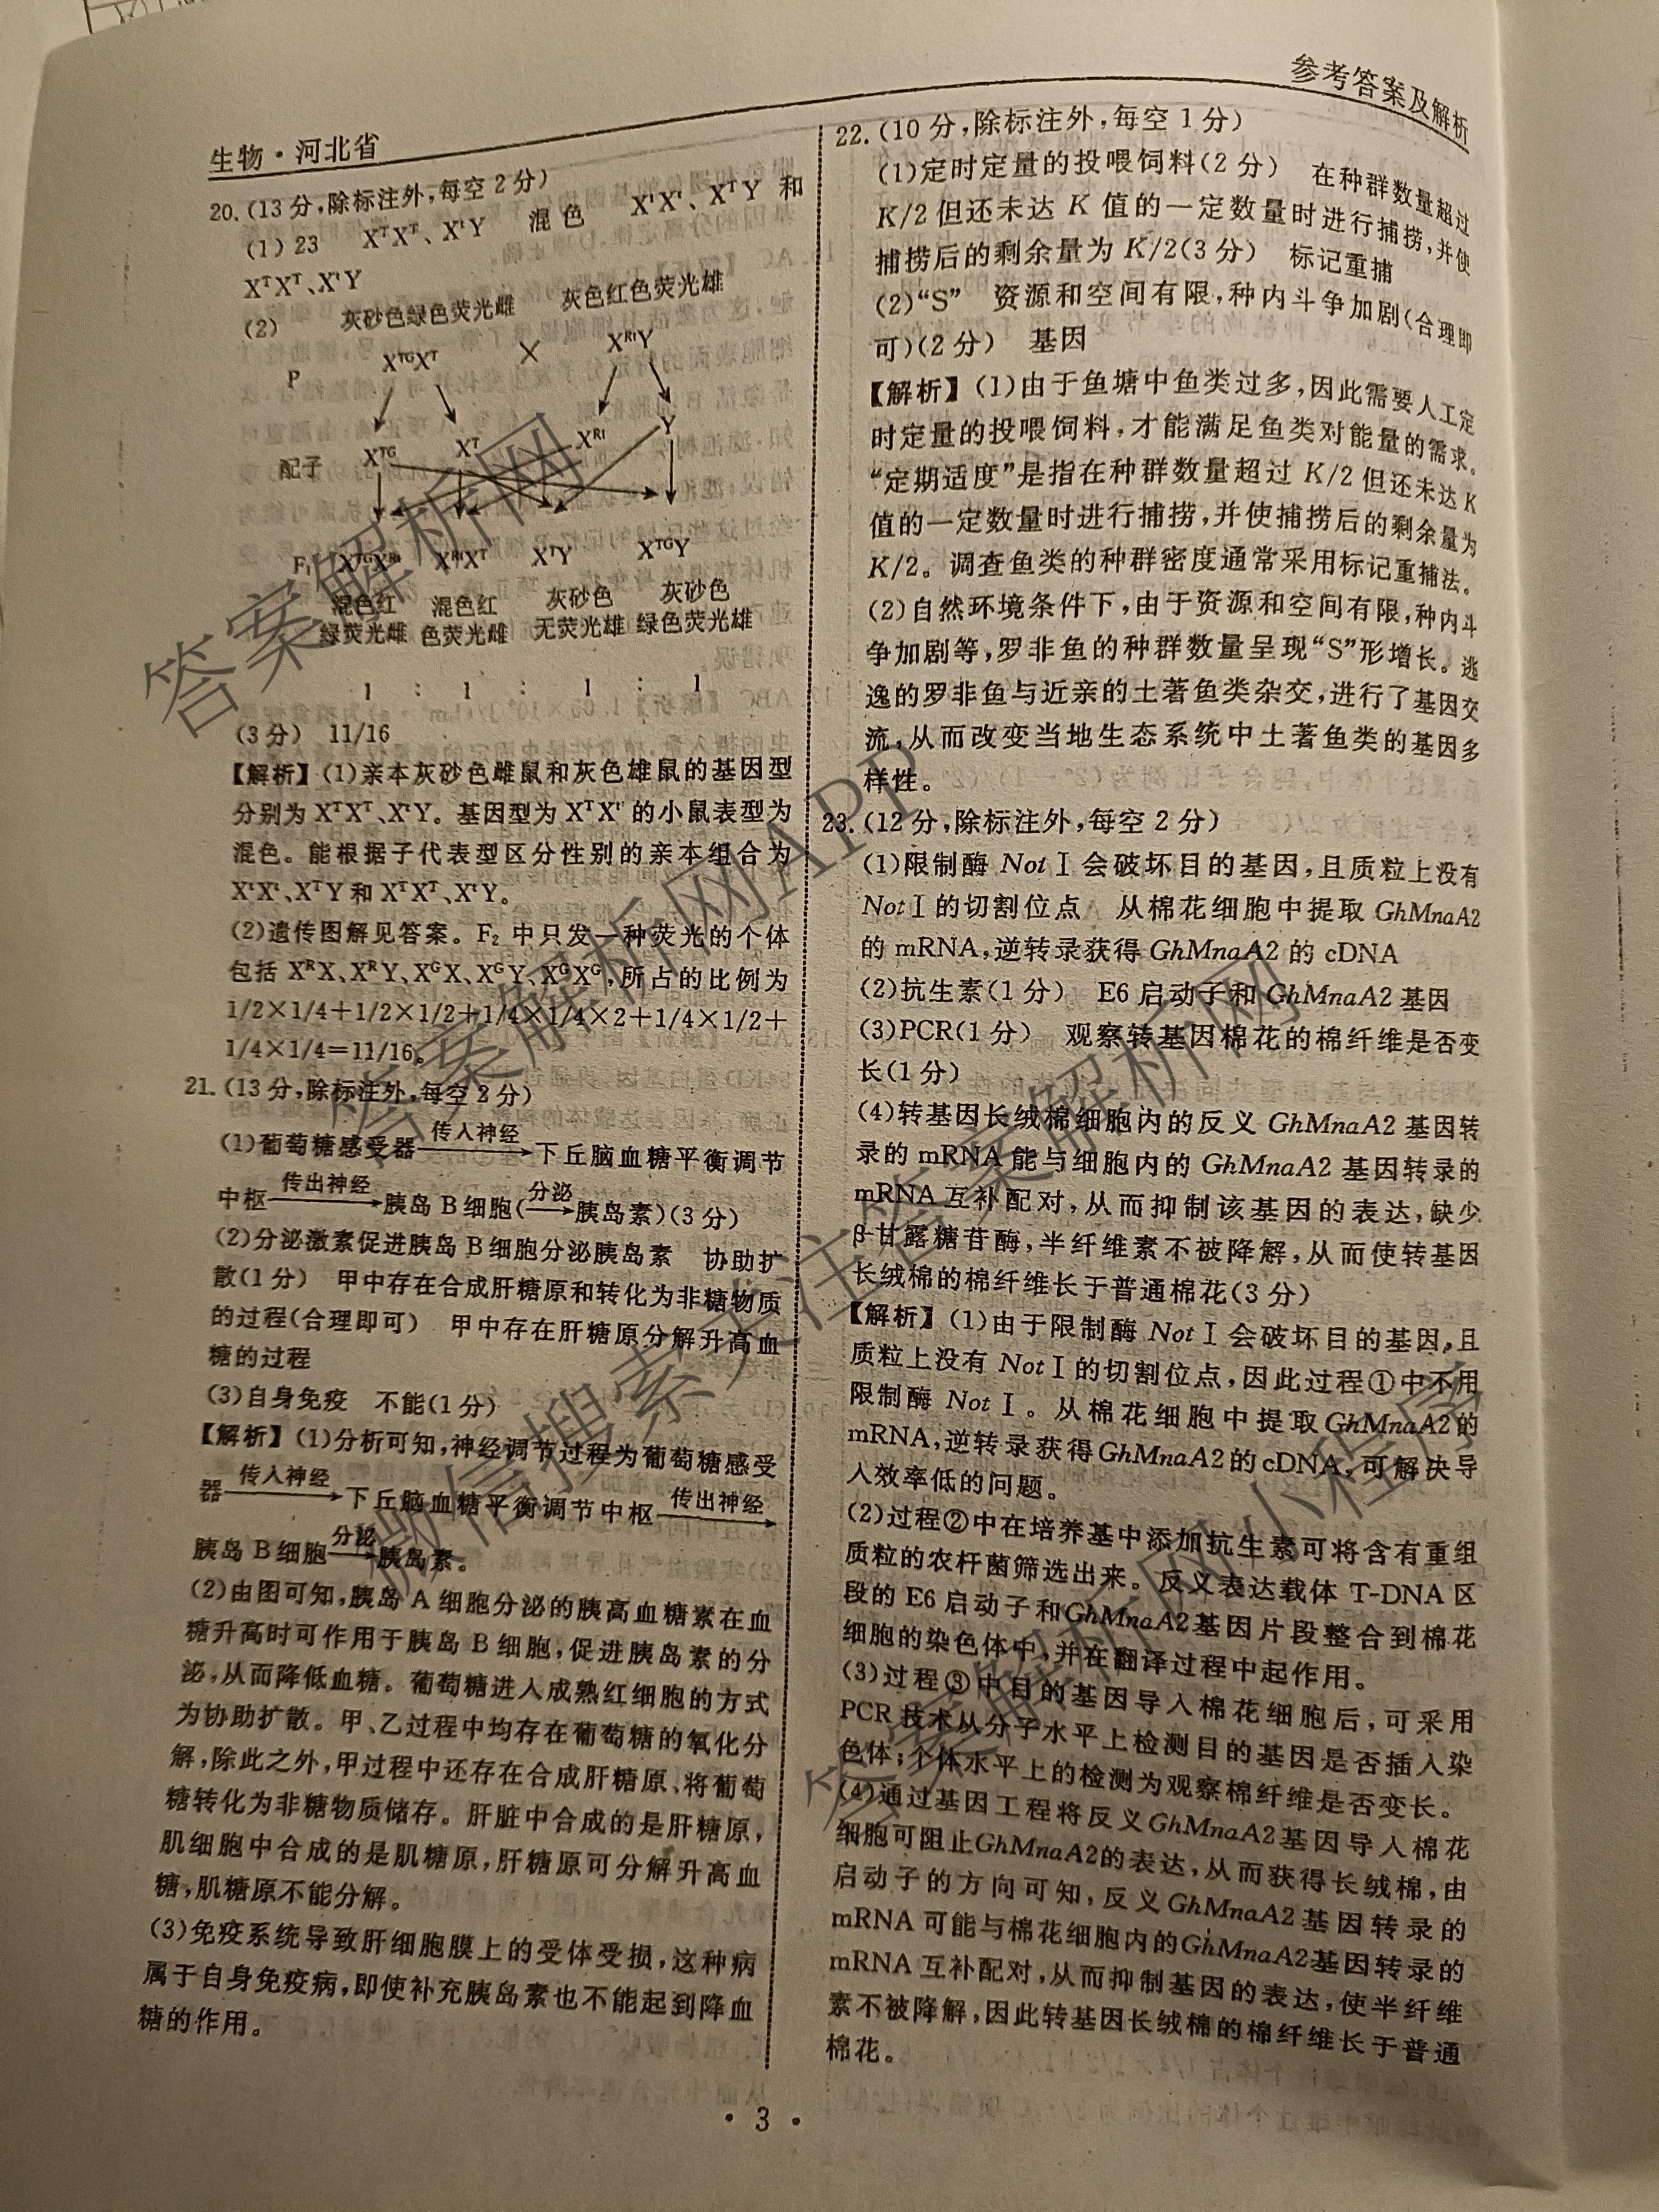 参考答案及解析
生物·河北省
20.(13分,除标注外,每空2分)
(1)23 XᵀXᵀ、XᵗY 混色 XᵗXᵗ、XᵀY 和
XᵀXᵀ、XᵗY
(2) 灰砂色绿色荧光雌 灰色红色荧光雄
P XᵀᴳXᵀ × XᴿᵗY
配子 Xᵀᴳ Xᵀ Xᴿᵗ Y
F₁ XᵀᴳXᴿᵗ XᴿᵗXᵀ XᵀY XᵀᴳY
混色红 混色红 灰砂色 灰砂色
绿荧光雌 色荧光雌 无荧光雄 绿色荧光雄
1 : 1 : 1 : 1
(3分) 11/16
【解析】(1)亲本灰砂色雌鼠和灰色雄鼠的基因型
分别为XᵀXᵀ、XᵗY。基因型为XᵀXᵗ的小鼠表型为
混色。能根据子代表型区分性别的亲本组合为
XᵗXᵗ、XᵀY和XᵀXᵀ、XᵗY。
(2)遗传图解见答案。F₂中只发一种荧光的个体
包括XᴿX、XᴿY、XᴳX、XᴳY、XᴳXᴳ,所占的比例为
1/2×1/4+1/2×1/2+1/4×1/4×2+1/4×1/2+
1/4×1/4=11/16。
21.(13分,除标注外,每空2分)
(1)葡萄糖感受器 传入神经→ 下丘脑血糖平衡调节
中枢 传出神经→ 胰岛B细胞( 分泌→ 胰岛素)(3分)
(2)分泌激素促进胰岛B细胞分泌胰岛素 协助扩
散(1分) 甲中存在合成肝糖原和转化为非糖物质
的过程(合理即可) 甲中存在肝糖原分解升高血
糖的过程
(3)自身免疫 不能(1分)
【解析】(1)分析可知,神经调节过程为葡萄糖感受
器 传入神经→ 下丘脑血糖平衡调节中枢 传出神经→
胰岛B细胞 分泌→ 胰岛素。
(2)由图可知,胰岛A细胞分泌的胰高血糖素在血
糖升高时可作用于胰岛B细胞,促进胰岛素的分
泌,从而降低血糖。葡萄糖进入成熟红细胞的方式
为协助扩散。甲、乙过程中均存在葡萄糖的氧化分
解,除此之外,甲过程中还存在合成肝糖原、将葡萄
糖转化为非糖物质储存。肝脏中合成的是肝糖原,
肌细胞中合成的是肌糖原,肝糖原可分解升高血
糖,肌糖原不能分解。
(3)免疫系统导致肝细胞膜上的受体受损,这种病
属于自身免疫病,即使补充胰岛素也不能起到降血
糖的作用。
22.(10分,除标注外,每空1分)
(1)定时定量的投喂饲料(2分) 在种群数量超过
K/2但还未达K值的一定数量时进行捕捞,并使
捕捞后的剩余量为K/2(3分) 标记重捕
(2)“S” 资源和空间有限,种内斗争加剧(合理即
可)(2分) 基因
【解析】(1)由于鱼塘中鱼类过多,因此需要人工定
时定量的投喂饲料,才能满足鱼类对能量的需求。
“定期适度”是指在种群数量超过K/2但还未达K
值的一定数量时进行捕捞,并使捕捞后的剩余量为
K/2。调查鱼类的种群密度通常采用标记重捕法。
(2)自然环境条件下,由于资源和空间有限,种内斗
争加剧等,罗非鱼的种群数量呈现“S”形增长。逃
逸的罗非鱼与近亲的土著鱼类杂交,进行了基因交
流,从而改变当地生态系统中土著鱼类的基因多
样性。
23.(12分,除标注外,每空2分)
(1)限制酶NotⅠ会破坏目的基因,且质粒上没有
NotⅠ的切割位点 从棉花细胞中提取GhMnaA2
的mRNA,逆转录获得GhMnaA2的cDNA
(2)抗生素(1分) E6启动子和GhMnaA2基因
(3)PCR(1分) 观察转基因棉花的棉纤维是否变
长(1分)
(4)转基因长绒棉细胞内的反义GhMnaA2基因转
录的mRNA能与细胞内的GhMnaA2基因转录的
mRNA互补配对,从而抑制该基因的表达,缺少
β-甘露糖苷酶,半纤维素不被降解,从而使转基因
长绒棉的棉纤维长于普通棉花(3分)
【解析】(1)由于限制酶NotⅠ会破坏目的基因,且
质粒上没有NotⅠ的切割位点,因此过程①中不用
限制酶NotⅠ。从棉花细胞中提取GhMnaA2的
mRNA,逆转录获得GhMnaA2的cDNA,可解决导
入效率低的问题。
(2)过程②中在培养基中添加抗生素可将含有重组
质粒的农杆菌筛选出来。反义表达载体T-DNA区
段的E6启动子和GhMnaA2基因片段整合到棉花
细胞的染色体中,并在翻译过程中起作用。
(3)过程③中目的基因导入棉花细胞后,可采用
PCR技术从分子水平上检测目的基因是否插入染
色体;个体水平上的检测为观察棉纤维是否变长。
(4)通过基因工程将反义GhMnaA2基因导入棉花
细胞可阻止GhMnaA2的表达,从而获得长绒棉,由
启动子的方向可知,反义GhMnaA2基因转录的
mRNA可能与棉花细胞内的GhMnaA2基因转录的
mRNA互补配对,从而抑制基因的表达,使半纤维
素不被降解,因此转基因长绒棉的棉纤维长于普通
棉花。
·3·
答案解析网
答案解析网APP
微信搜索关注答案解析网
答案解析网小程序